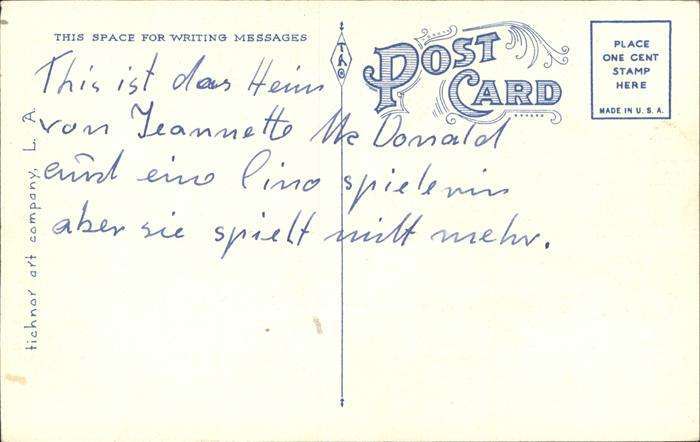 THIS SPACE FOR WRITING MESSAGES
POST CARD
PLACE
ONE CENT
STAMP
HERE
MADE IN U.S.A.
TAC
This ist das Heim
von Jeannette Mc Donald
und eine Cino spielerin
aber sie spielt nitt mehr.
tichnor art company, L. A.